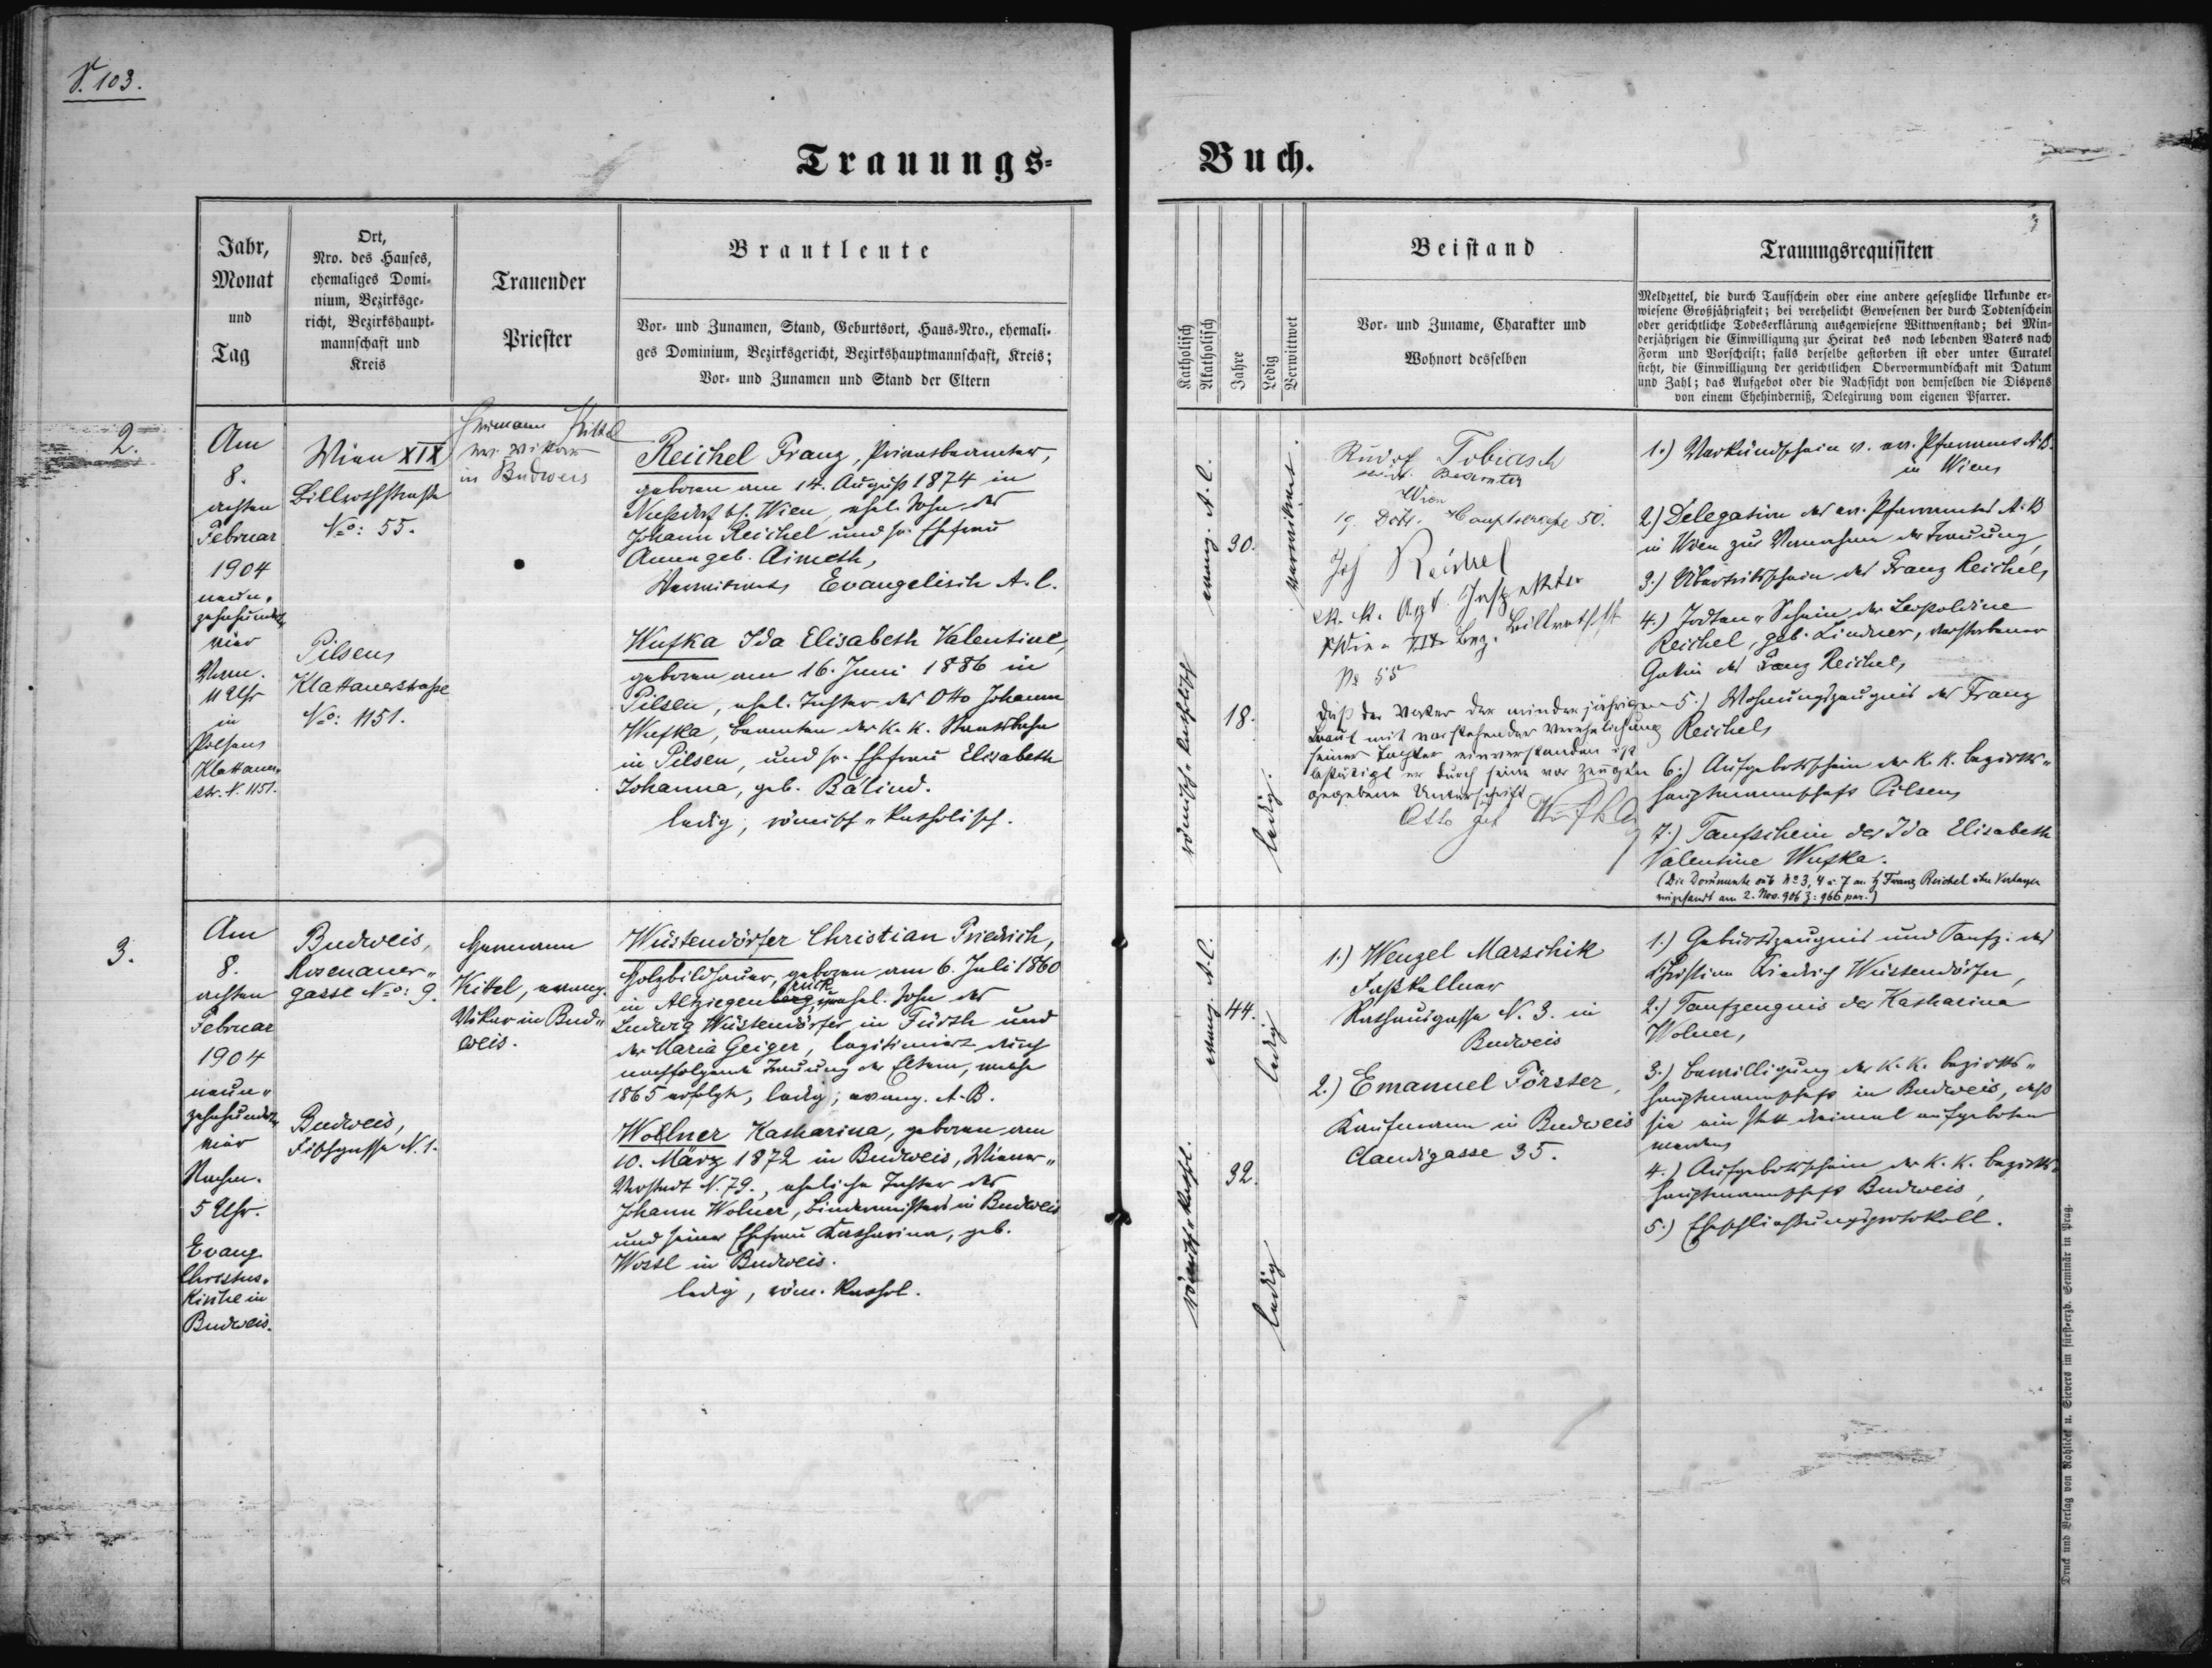 103.
Trauungs-
Buch.
Jahr,
Monat
und
Tag
Ort,
Nro. des Hauses,
ehemaliges Domi-
nium, Bezirksge-
richt, Bezirkshaupt-
mannschaft und
Kreis
Trauender
Priester
Brautleute
Vor- und Zunamen, Stand, Geburtsort, Haus-Nro., ehemali-
ges Dominium, Bezirksgericht, Bezirkshauptmannschaft, Kreis;
Vor- und Zunamen und Stand der Eltern
Katholisch
Akatholisch
Jahre
Ledig
Verwittwet
Beistand
Vor- und Zuname, Charakter und
Wohnort desselben
3
Trauungsrequisiten
Meldzettel, die durch Taufschein oder eine andere gesetzliche Urkunde er-
wiesene Großjährigkeit; bei verehelicht Gewesenen der durch Todtenschein
oder gerichtliche Todeserklärung ausgewiesene Wittwenstand; bei Min-
derjährigen die Einwilligung zur Heirat des noch lebenden Vaters nach
Form und Vorschrift; falls derselbe gestorben ist oder unter Curatel
steht, die Einwilligung der gerichtlichen Obervormundschaft mit Datum
und Zahl; das Aufgebot oder die Nachsicht von demselben die Dispens
von einem Ehehinderniß, Delegirung vom eigenen Pfarrer.
2.
Am
8.
achten
Februar
1904
neun-
zehnhundert
vier
Vorm.
11 Uhr
in
Pilsen
Klattauer-
str. N. 1151.
Wien XIX
Billrothstraße
No: 55.
Pilsen,
Klattauerstraße
No: 1151.
Hermann Kittel
ev. Vikar
in Budweis
Reichel Franz, Privatbeamter,
geboren am 14. August 1874 in
Nußdorf bei Wien, ehel. Sohn des
Johann Reichel und sr. Ehefrau
Anna geb. Aimeth,
Verwitwet Evangelisch A. C.
Wufka Ida Elisabeth Valentine,
geboren am 16. Juni 1886 in
Pilsen, ehel. Tochter des Otto Johann
Wufka, Beamten der K. K. Staatsbahn
in Pilsen, und sr. Ehefrau Elisabeth
Johanna, geb. Bálind.
ledig, römisch-katholisch.
evang. A. C.
30.
verwitwet.
römisch-katholisch
18.
ledig.
Rudolf Tobiasch
Beamter
Wien
19. Hauptstraße 50.
Jos Reichel
K. K. Inspektor
Wien XIX Bez. Billrothstr
No 55
Daß der Vater der minderjährigen
Braut mit vorstehender Verehelichung
seiner Tochter einverstanden ist
bestätigt er durch seine vor Zeugen
gegebene Unterschrift
Otto Joh Wufka
1.) Verkündschein v. ev. Pfarramt A. B.
in Wien
2.) Delegation des ev. Pfarramtes A. B
in Wien zur Vornahme der Trauung,
3.) Übertrittschein des Franz Reichel,
4.) Todten-Schein der Leopoldine
Reichel, geb. Lindner, verstorbener
Gattin des Franz Reichel,
5.) Wohnungszeugnis des Franz
Reichel,
6.) Aufgebotsschein der K. K. Bezirks-
hauptmannschaft Pilsen,
7.) Taufschein der Ida Elisabeth
Valentine Wufka.
(Die Documente sub No 3, 4 u. 7 an Franz Reichel über Verlangen
eingesandt am 2. Nov. 906 Z: 966 par.)
3.
Am
8.
achten
Februar
1904
neun-
zehnhundert
vier
Nachm.
5 Uhr.
Evang.
Christus-
Kirche in
Budweis.
Budweis,
Rosenauer-
gasse No: 9.
Budweis,
Fischgasse N. 1.
Hermann
Kittel, evang.
Vikar in Bud-
weis.
Wüstendörfer Christian Friedrich,
Holzbildhauer, geboren am 6. Juli 1860
rück
in Altziegenberg, unehel. Sohn des
Ludwig Wüstendörfer in Fürth und
der Maria Geiger, legitimiert durch
nachfolgende Trauung der Eltern, welche
1865 erfolgte, ledig, evang. A. B.
Wollner Katharina, geboren am
10. März 1872 in Budweis, Wiener-
Vorstadt N. 79., eheliche Tochter des
Johann Wolner, Bindermeisters in Budweis
und seiner Ehefrau Katharina, geb.
Wostl in Budweis.
ledig, röm. kathol.
evang. A. C.
44.
ledig
römisch-kathol.
32.
ledig
1.) Wenzel Marschik
Rathausgasse N. 3. in
Budweis
2.) Emanuel Förster,
Kaufmann in Budweis
Claudigasse 35.
1.) Geburtszeugnis und Taufz. des
Christian Friedrich Wüstendörfer,
2.) Taufzeugnis der Katharina
Wolner,
3.) Bewilligung der K. K. Bezirks-
hauptmannschaft in Budweis, daß
sie ein statt dreimal aufgeboten
werden,
4.) Aufgebotsschein der K. K. Bezirks-
hauptmannschaft Budweis,
5.) Eheschließungsprotokoll.
Druck und Verlag von Rohliček u. Sievers im fürst-erzb. Seminär in Prag.